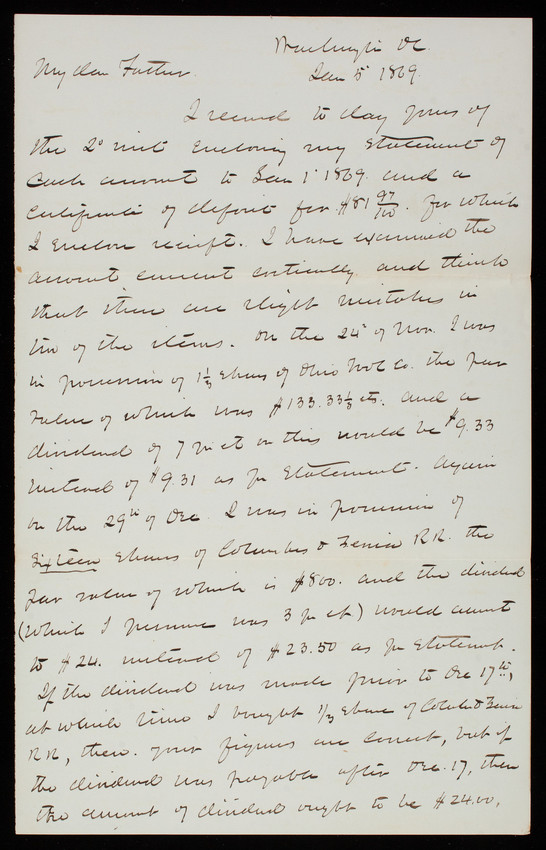 Washington DC.
My dear Father. Jan 5" 1869.
I received to day yours of
the 2d inst enclosing my statement of
Cash account to Jan 1" 1869. and a
certificate of deposit for $81 97/100. for which
I enclose receipt. I have examined the
account current critically and think
that there are slight mistakes in
two of the items. On the 24" of Nov. I was
in possession of 1 1/3 Shares of Ohio Co. the par
value of which was $133.33 1/3 cts. and a
dividend of 7 pr ct on this would be $9.33
instead of $9.31 as pr Statement. Again
on the 29th of Dec I was in possession of
Sixteen Shares of Columbus & Xenia RR. the
par value of which is $800. and the dividend
(which I presume was 3 pr ct) would amt
to $24. instead of $23.50 as pr Statemt.
If the dividend was made prior to Dec 17th,
at which time I bought 1/3 Share of Col & Xenia
RR, then your figures are correct, but if
the dividend was payable after Dec. 17, then
the amount of dividend ought to be $24.00.